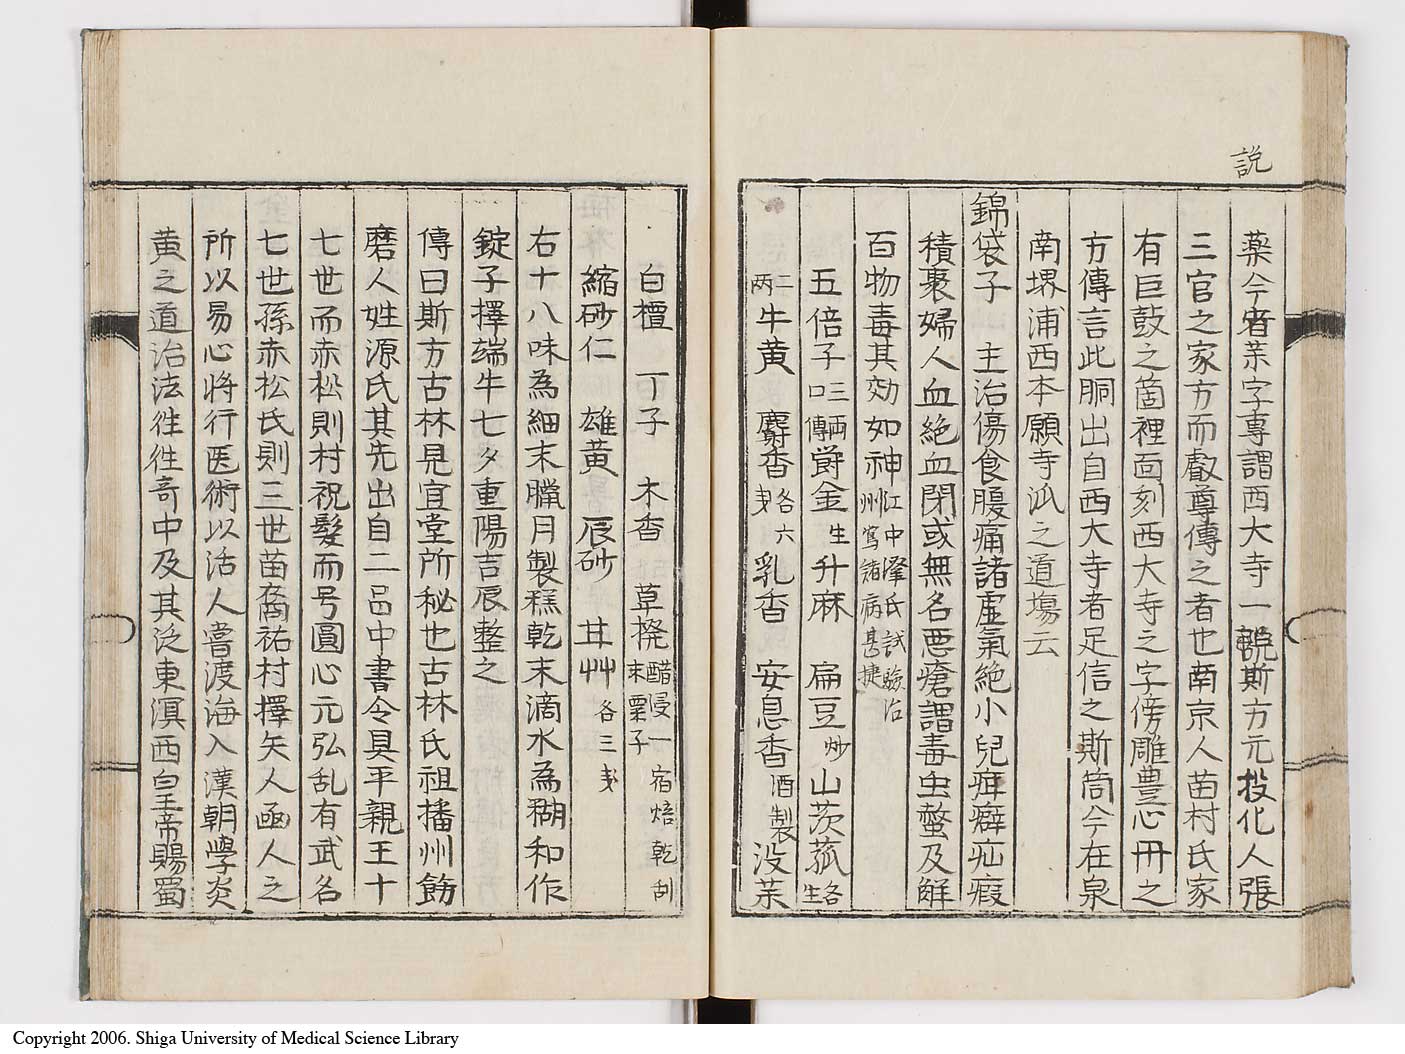 説
薬今省茱字專謂西大寺一説斯方元投化人張
三官之家方而叡尊傳之者也南京人苗村氏家
有巨鼓之箇裡面刻西大寺之字傍雕豊心丹之
方傳言此胴出自西大寺者足信之斯筒今在泉
南堺浦西本願寺泒之道塲云
錦袋子 主治傷食腹痛諸虚氣絶小兒疳癖疝瘕
積聚婦人血絶血閉或無名悪瘡謂毒虫螫及觧
百物毒其効如神江中澤氏試驗治州寫諸病甚捷
五倍子三兩口傳 欝金生 升麻 扁豆炒 山茨菰各生
二两 牛黄 麝香各六戋 乳香 安息香酒製 没茱
白檀 丁子 木香 草橃醋浸一宿焙乾刮末粟子
縮砂仁 雄黄 辰砂 甘艸各三戋
右十八味為細末臘月製糕乾末滴水為糊和作
錠子擇端午七夕重陽吉辰整之
傳曰斯方古林見宜堂所秘也古林氏祖播州餝
磨人姓源氏其先出自二品中書令具平親王十
七世而赤松則村祝髪而号圓心元弘乱有武名
七世孫赤松氏則三世苗裔祐村擇矢人凾人之
所以易心将行医術以活人嘗渡海入漢朝學炎
黄之道治法徃徃奇中及其泛東溟西皇帝賜蜀
Copyright 2006. Shiga University of Medical Science Library